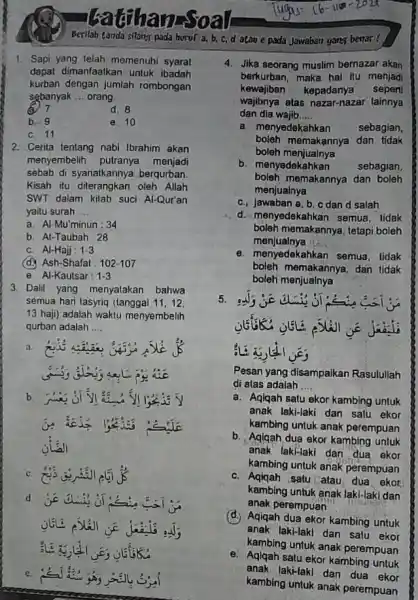 Latihan Soal
Tugas: 16-
Berilah tanda silang pada huruf a, b, c, d atau e pada jawaban yang benar !
1. Sapi yang telah memenuhi syarat
dapat dimanfaatkan untuk ibadah
kurban dengan jumlah rombongan
sebanyak ... orang.
a. 7
d. 8
b. 9
e. 10
c. 11
2. Cerita tentang nabi Ibrahim akan
menyembelih putranya menjadi
sebab di syariatkannya berqurban.
Kisah itu diterangkan oleh Allah
SWT dalam kitab suci Al-Qur'an
yaitu surah ...
a. Al-Mu'minun : 34
b. At-Taubah : 28
c. Al-Hajj : 1-3
d. Ash-Shafat : 102-107
e. Al-Kautsar : 1-3
3. Dalil yang menyatakan bahwa
semua hari tasyriq (tanggal 11, 12,
13 haji) adalah waktu menyembelih
qurban adalah ....
a. كُلُّ غُلَامٍ مُرْتَهَنٌ بِعَقِيْقَتِهِ تُذْبَحُ
عَنْهُ يَوْمَ سَابِعِهِ وَيُحْلَقُ وَيُسَمَّى
b. لَا تَذْبَحُوْا إِلَّا مُسِنَّةً إِلَّا أَنْ يَعْسُرَ
عَلَيْكُمْ فَتَذْبَحُوْا جَذَعَةً مِنَ
الضَّأْنِ
c. كُلُّ أَيَّامِ التَّشْرِيْقِ ذَبْحٌ
d. مَنْ أَحَبَّ مِنْكُمْ أَنْ يُنْسَكَ عَنْ
وَلَدِهِ فَلْيَفْعَلْ عَنِ الْغُلَامِ شَاتَانِ
مُكَافَأَتَانِ وَعَنِ الْجَارِيَةِ شَاةٌ
e. أُمِرْتُ بِالنَّحْرِ وَهُوَ سُنَّةٌ لَكُمْ
4. Jika seorang muslim bernazar akan
berkurban, maka hal itu menjadi
kewajiban kepadanya seperti
wajibnya atas nazar-nazar lainnya
dan dia wajib.....
a. menyedekahkan sebagian,
boleh memakannya dan tidak
boleh menjualnya
b. menyedekahkan sebagian,
boleh memakannya dan boleh
menjualnya
c. jawaban a, b, c dan d salah
d. menyedekahkan semua, tidak
boleh memakannya, tetapi boleh
menjualnya
e. menyedekahkan semua, tidak
boleh memakannya, dan tidak
boleh menjualnya
5. مَنْ أَحَبَّ مِنْكُمْ أَنْ يُنْسَكَ عَنْ وَلَدِهِ
فَلْيَفْعَلْ عَنِ الْغُلَامِ شَاتَانِ مُكَافَأَتَانِ
وَعَنِ الْجَارِيَةِ شَاةٌ
Pesan yang disampaikan Rasulullah
di atas adalah ....
a. Aqiqah satu ekor kambing untuk
anak laki-laki dan satu ekor
kambing untuk anak perempuan
b. Aqiqah dua ekor kambing untuk
anak laki-laki dan dua ekor
kambing untuk anak perempuan
c. Aqiqah satu atau dua ekor
kambing untuk anak laki-laki dan
anak perempuan
d. Aqiqah dua ekor kambing untuk
anak laki-laki dan satu ekor
kambing untuk anak perempuan
e. Aqiqah satu ekor kambing untuk
anak laki-laki dan dua ekor
kambing untuk anak perempuan